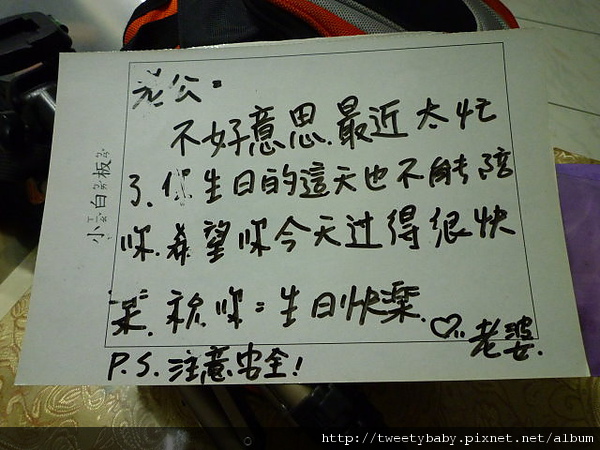 小白板
老公:
不好意思.最近太忙
了.你生日的這天也不能陪
你.希望你今天过得很快
樂.祝你:生日快樂.
♡老婆.
P.S.注意安全!
http://tweetybaby.pixnet.net/album